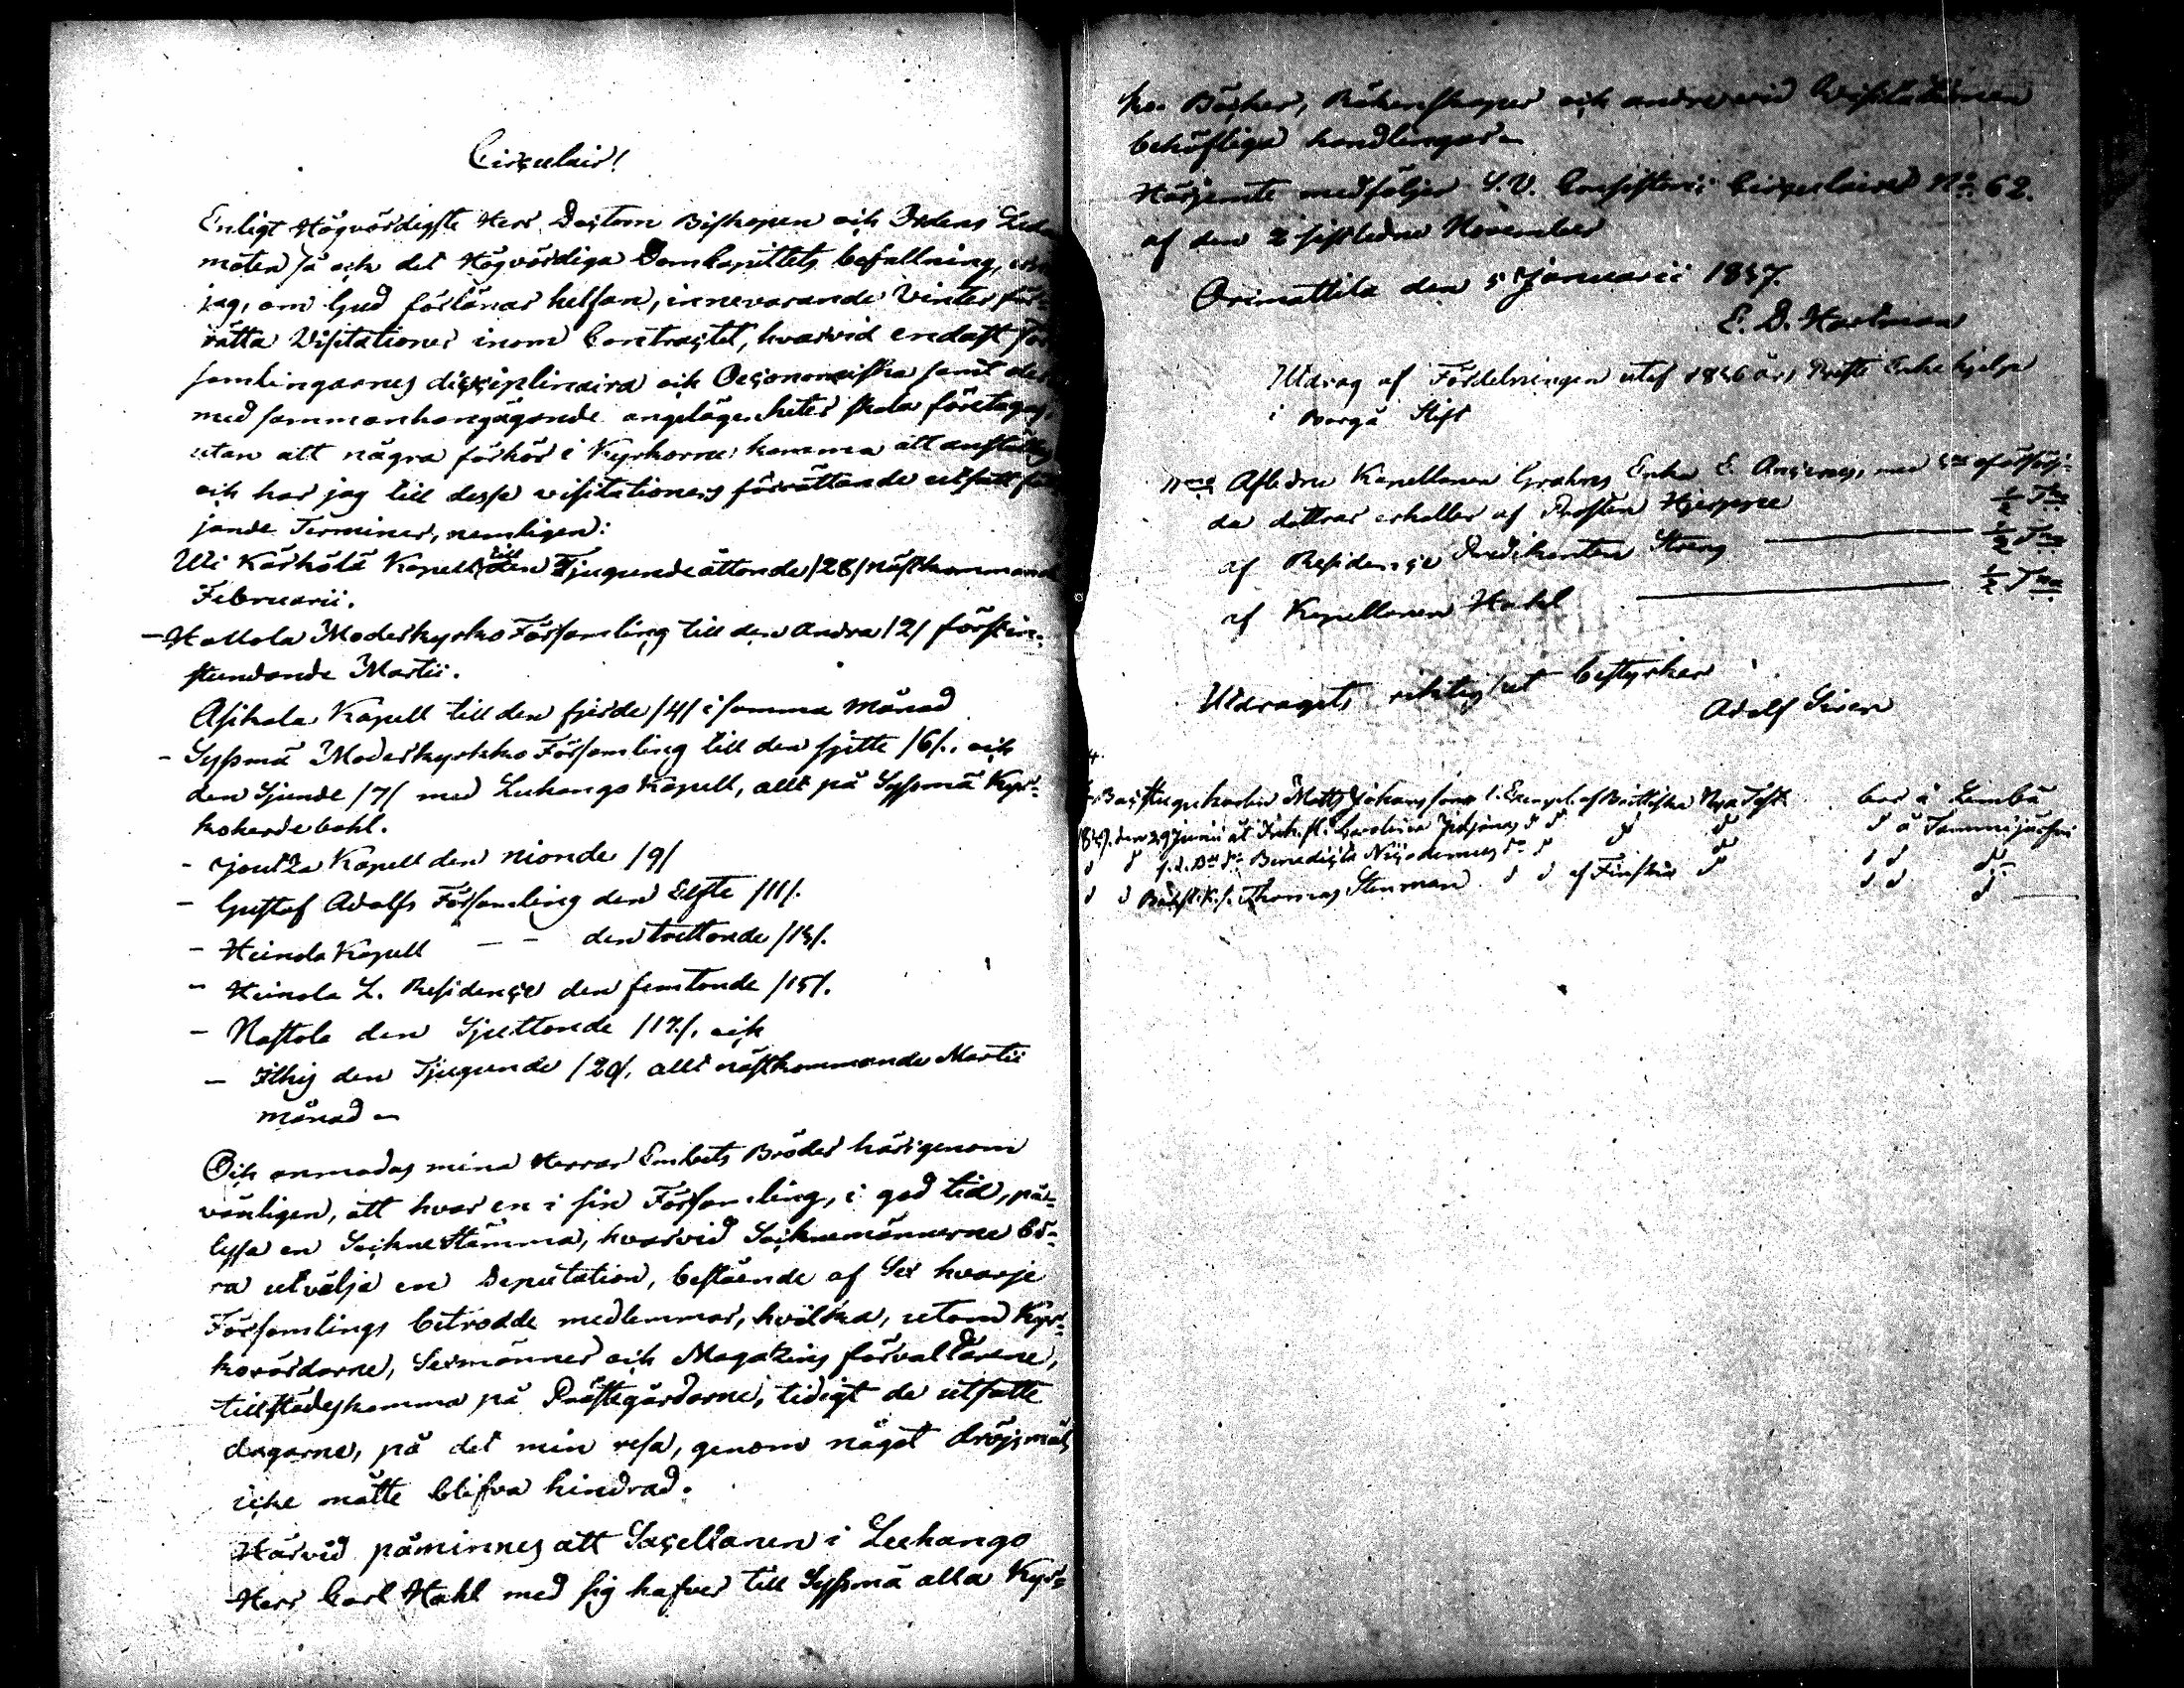 Circulair!
Enligt Högvördigste Herr Doctorn Biskopen och Ordens Leda
möten så ock det Högvördiga Domkapitlets befallning,
jag, om Gud förlänar helsan, innevarande Vinter för-
rätta Visitationer inom Contractet, hvarvid endast för
samlingarnes disciplinaira och Oeconomiska samt der
med sammanhangägande angelägenheter skola företagas,
utan att några förhör i Kyrkorne komma att anställas
och har jag till desse visitationers förrättande utsatt föl
jande Terminer, nemligen:
Uti Kärkölä Kapell till den Tjugundeåttonde /28/ nästkommande
Februarii.
- Hollola Moderkyrko Församling till den Andra /2/ förstin-
stundande Martii.
Asikala Kapell till den fjerde /4/ i samma Månad
- Syssmä Moderkyrko Församling till den sjette /6/., och
den Sjunde /7/ med Luhango Kapell, allt på Syssmä Kyr-
koherdebohl.
- Joutza Kapell den nionde /9/
- Gustaf Adolfs Församling den Elfte /11/.
- Heinola Kapell - - den trettonde /13/.
- Heinola L. Residence den femtonde /15/.
- Nastola den Sjuttonde /17/. och
- Ithis den Tjugunde /20/, allt nästkommande Martii
månad -
Och anmodas mina Herrar Embets Bröder härigenom
vänligen, att hvar en i sin Församling, i god tid, på-
lysa en Sockne Stämma, hvarvid Socknemännerne bö-
ra utvälja en Deputation, bestående af Sex hvarje
Församlings betrodde medlemmar, hvilka, utom Kyr-
kovärdarne, Sexmänner och Magazins förvaltarene,
tillstädeskomma på Prästegårdarne, tidigt de utsatte
dagarne, på det min resa, genom något dröjsmål
icke måtte blifva hindrad.
Härvid påminnes att Sacellanen i Luhango
Herr Carl Hahl med sig hafver till Syssmä alla Kyr-
ko-Böcker, Räkenskaper och andre vid Visitationen
behöfliga handlingar -
Härjemte medföljer S.V. Consistorii Circulaire No 62.
af den 2 sistledne November
Orimattila den 5 Januarii 1847.
E. D. Hartman
Utdrag af Fördelningen utaf 1846 års Preste Enkehjelp
i Borgå Stift
Aflidne Kapellanen Grahns Enka E. med
da döttrar erhåller af Prosten 1/2 Tna
af Residence Predikanten Streng 1/2 Tna
af Kapellanen Hahl 1/2 Tna
Utdragets riktighet bestyrker
Adolf Siren
Matts Johansson 1. Exempl. af Brittiska Nya Test. bor i
1847. den 29 Junii åt Carolina
Benedicta Nicodemus
Thomas Stenman af Finska